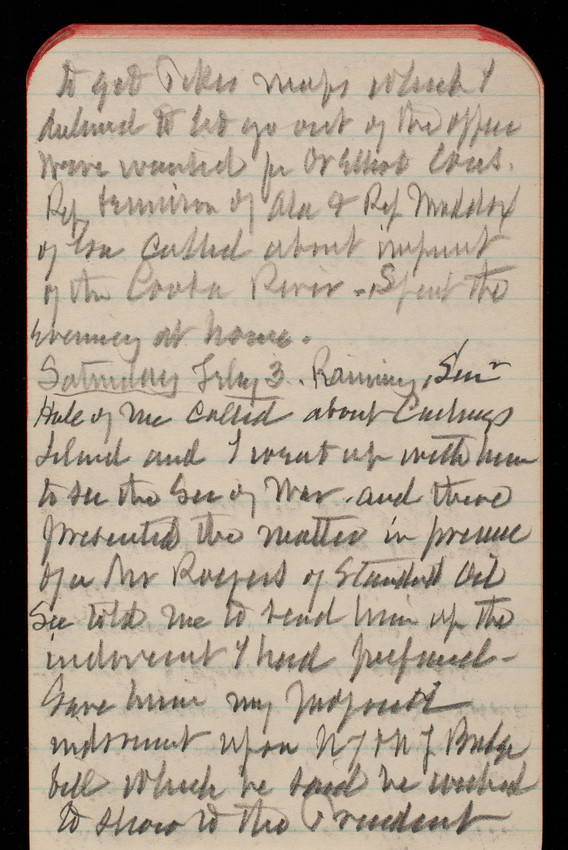 to get Picks maps which I
declined to let go out of the office
were wanted for Dr Elliot Coues.
Rep Dennison of Ala & Rep Maddox
of Ga called about improvt
of the Coosa River - Spent the
evening at home.
Saturday Feby 3. Raining, Senr
Hale of Me called about Cushings
Island and I went up with him
to see the Sec of War. and there
presented the matter in presence
of a Mr Rogers of Standard Oil
Sec told me to send him up the
indorsemt I had prepared -
Gave him my proposed
indorsemt upon NY & NJ Bridge
bill which he said he wished
to show to the President